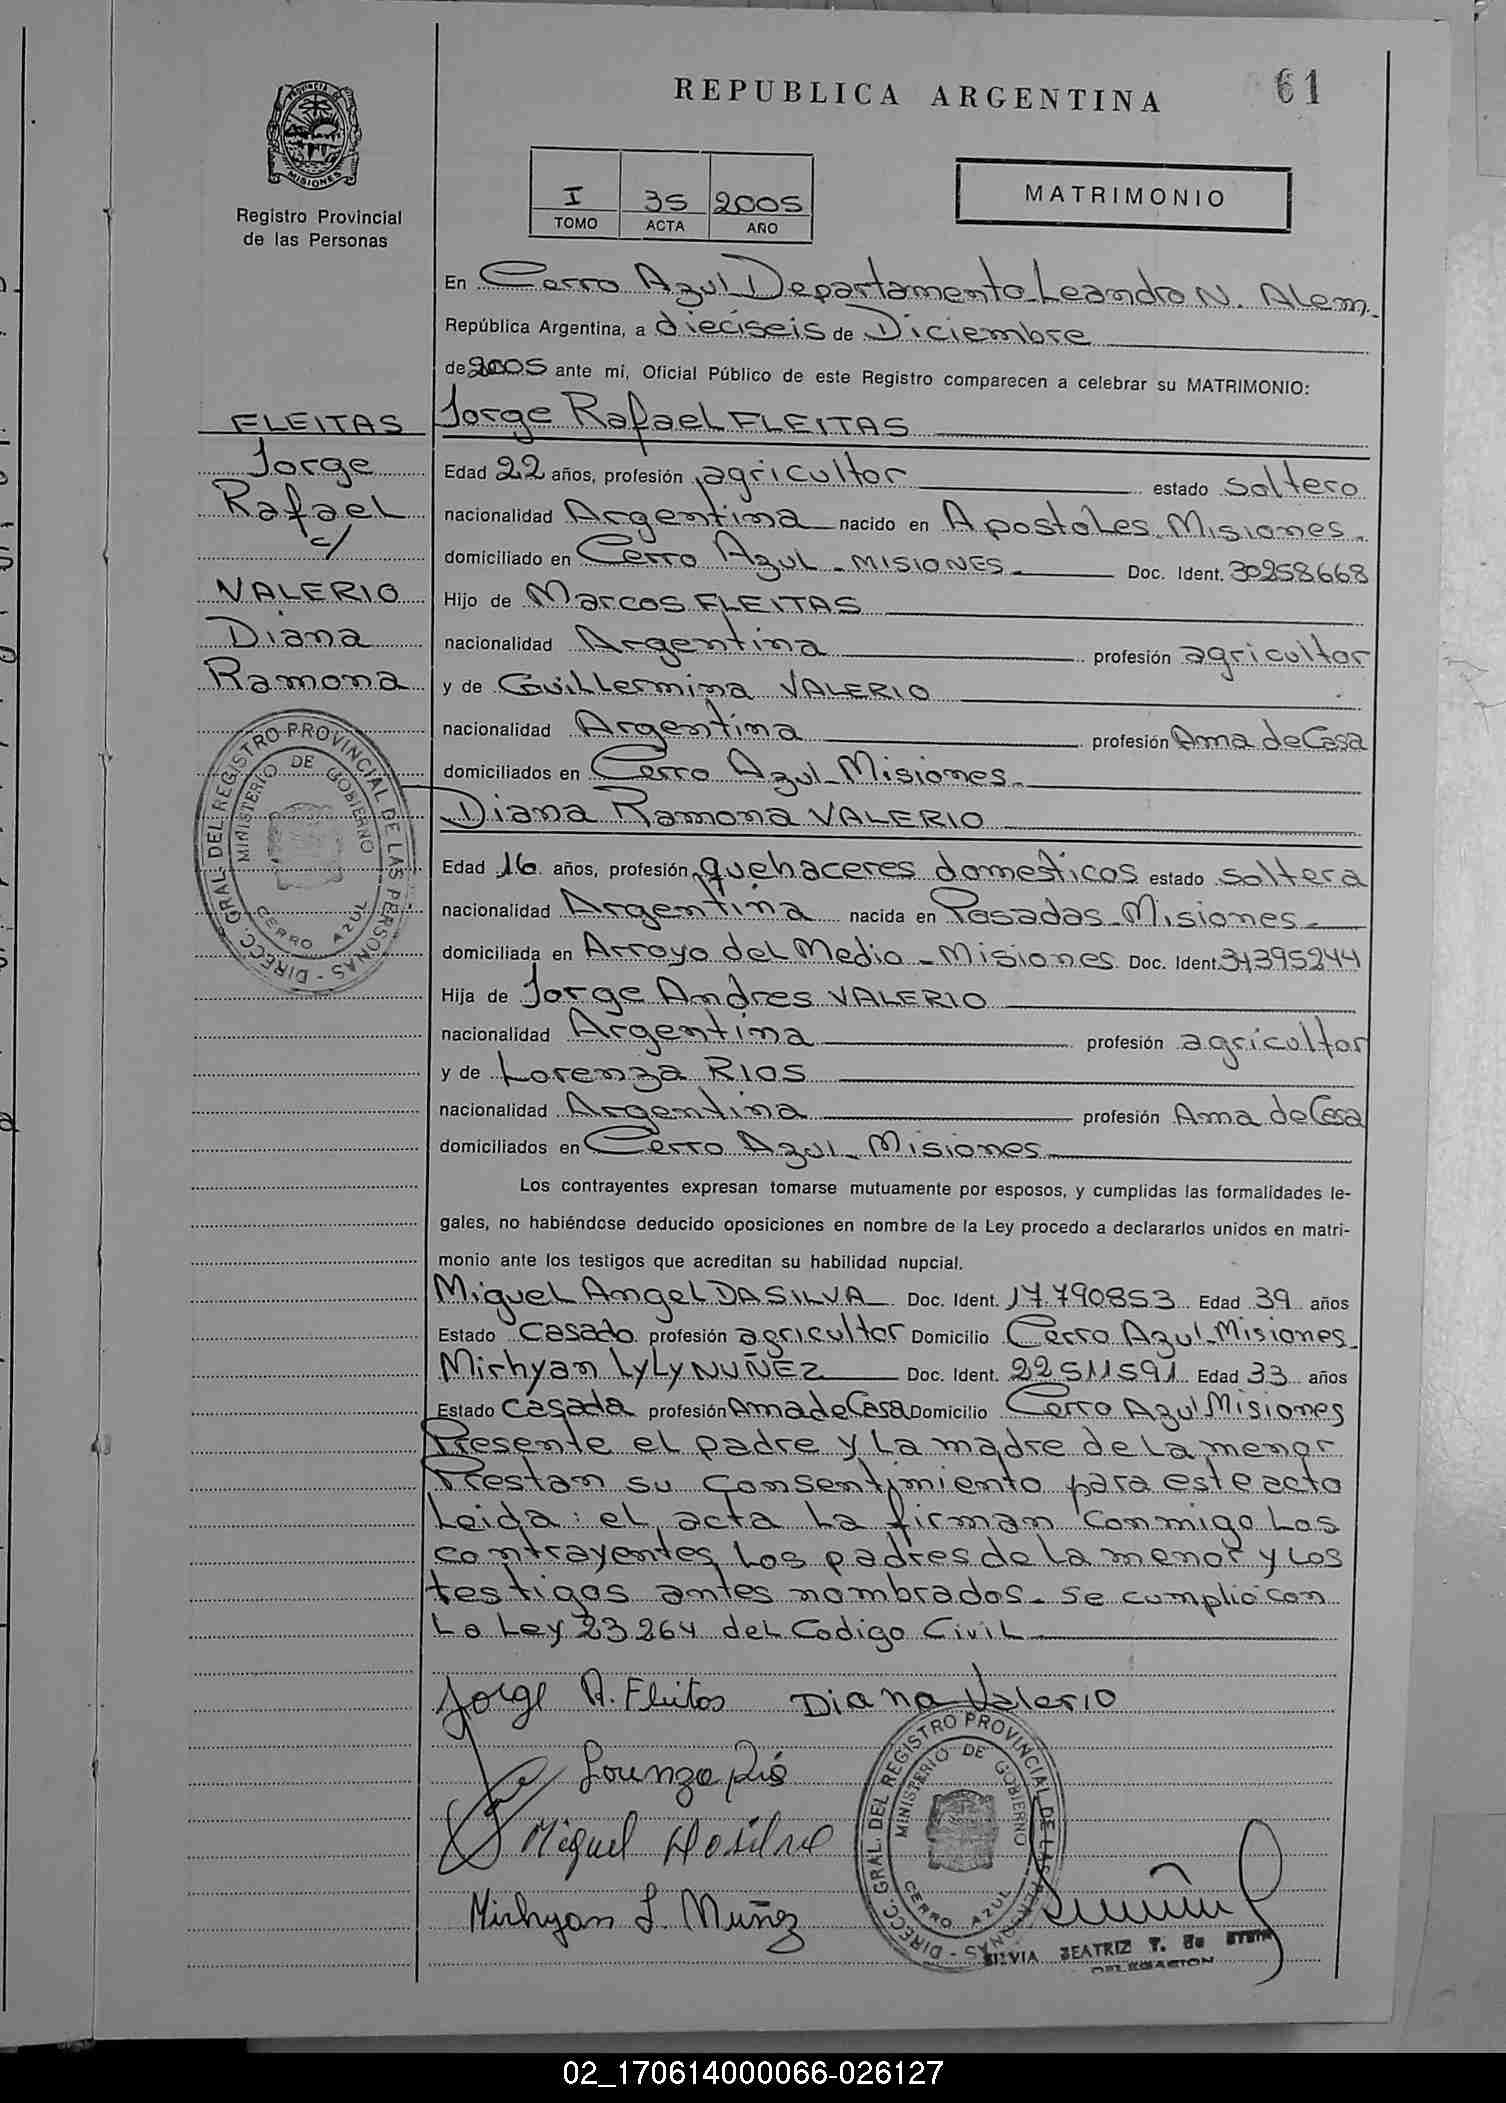 REPUBLICA ARGENTINA
61
PROVINCIA DE
MISIONES
Registro Provincial
de las Personas
I 35 2005
TOMO ACTA AÑO
MATRIMONIO
En Cerro Azul Departamento Leandro N. Alem.
República Argentina, a dieciseis de Diciembre
de 2005 ante mí, Oficial Público de este Registro comparecen a celebrar su MATRIMONIO:
FLEITAS
Jorge
Rafael
c/
VALERIO
Diana
Ramona
Jorge Rafael FLEITAS
Edad 22 años, profesión agricultor estado soltero
nacionalidad Argentina nacido en Apostoles Misiones.
domiciliado en Cerro Azul - MISIONES Doc. Ident. 30258668
Hijo de Marcos FLEITAS
nacionalidad Argentina profesión agricultor
y de Guillermina VALERIO
nacionalidad Argentina profesión Ama de Casa
domiciliados en Cerro Azul - Misiones.
Diana Ramona VALERIO
Edad 16 años, profesión quehaceres domesticos estado soltera
nacionalidad Argentina nacida en Posadas - Misiones
domiciliada en Arroyo del Medio - Misiones Doc. Ident. 34395244
Hija de Jorge Andres VALERIO
nacionalidad Argentina profesión agricultor
y de Lorenza RIOS
nacionalidad Argentina profesión Ama de Casa
domiciliados en Cerro Azul - Misiones
DIRECC. GRAL. DEL REGISTRO PROVINCIAL DE LAS PERSONAS -
MINISTERIO DE GOBIERNO
CERRO AZUL
Los contrayentes expresan tomarse mutuamente por esposos, y cumplidas las formalidades le-
gales, no habiéndose deducido oposiciones en nombre de la Ley procedo a declararlos unidos en matri-
monio ante los testigos que acreditan su habilidad nupcial.
Miguel Angel DASILVA Doc. Ident. 17.790853 Edad 39 años
Estado casado profesión agricultor Domicilio Cerro Azul - Misiones
Mirhyan LyLy NUÑEZ Doc. Ident. 22511591 Edad 33 años
Estado casada profesión Ama de Casa Domicilio Cerro Azul Misiones
Presente el padre y la madre de la menor
Prestan su consentimiento para este acto
Leida: el acta la firman conmigo los
contrayentes, los padres de la menor y los
testigos antes nombrados. se cumplió con
la Ley 23264 del Codigo Civil
Jorge R. Fleitas Diana Valerio
Lorenza Rios
Miguel Dasilva
Mirhyan L. Nuñez
DIRECC. GRAL. DEL REGISTRO PROVINCIAL DE LAS PERSONAS -
MINISTERIO DE GOBIERNO
CERRO AZUL
SILVIA BEATRIZ T. de
02_170614000066-026127